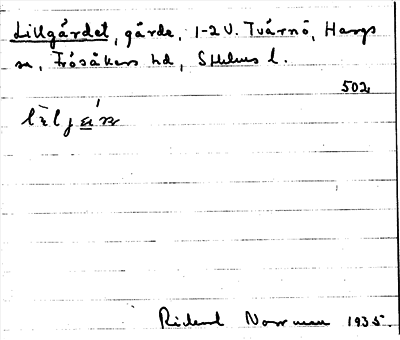 Lillgärdet, gärde, 1-2 V. Tvärnö, Hargs
sn, Frösåkers hd, Sthlms l.
502
Rickard Norrman 1935.